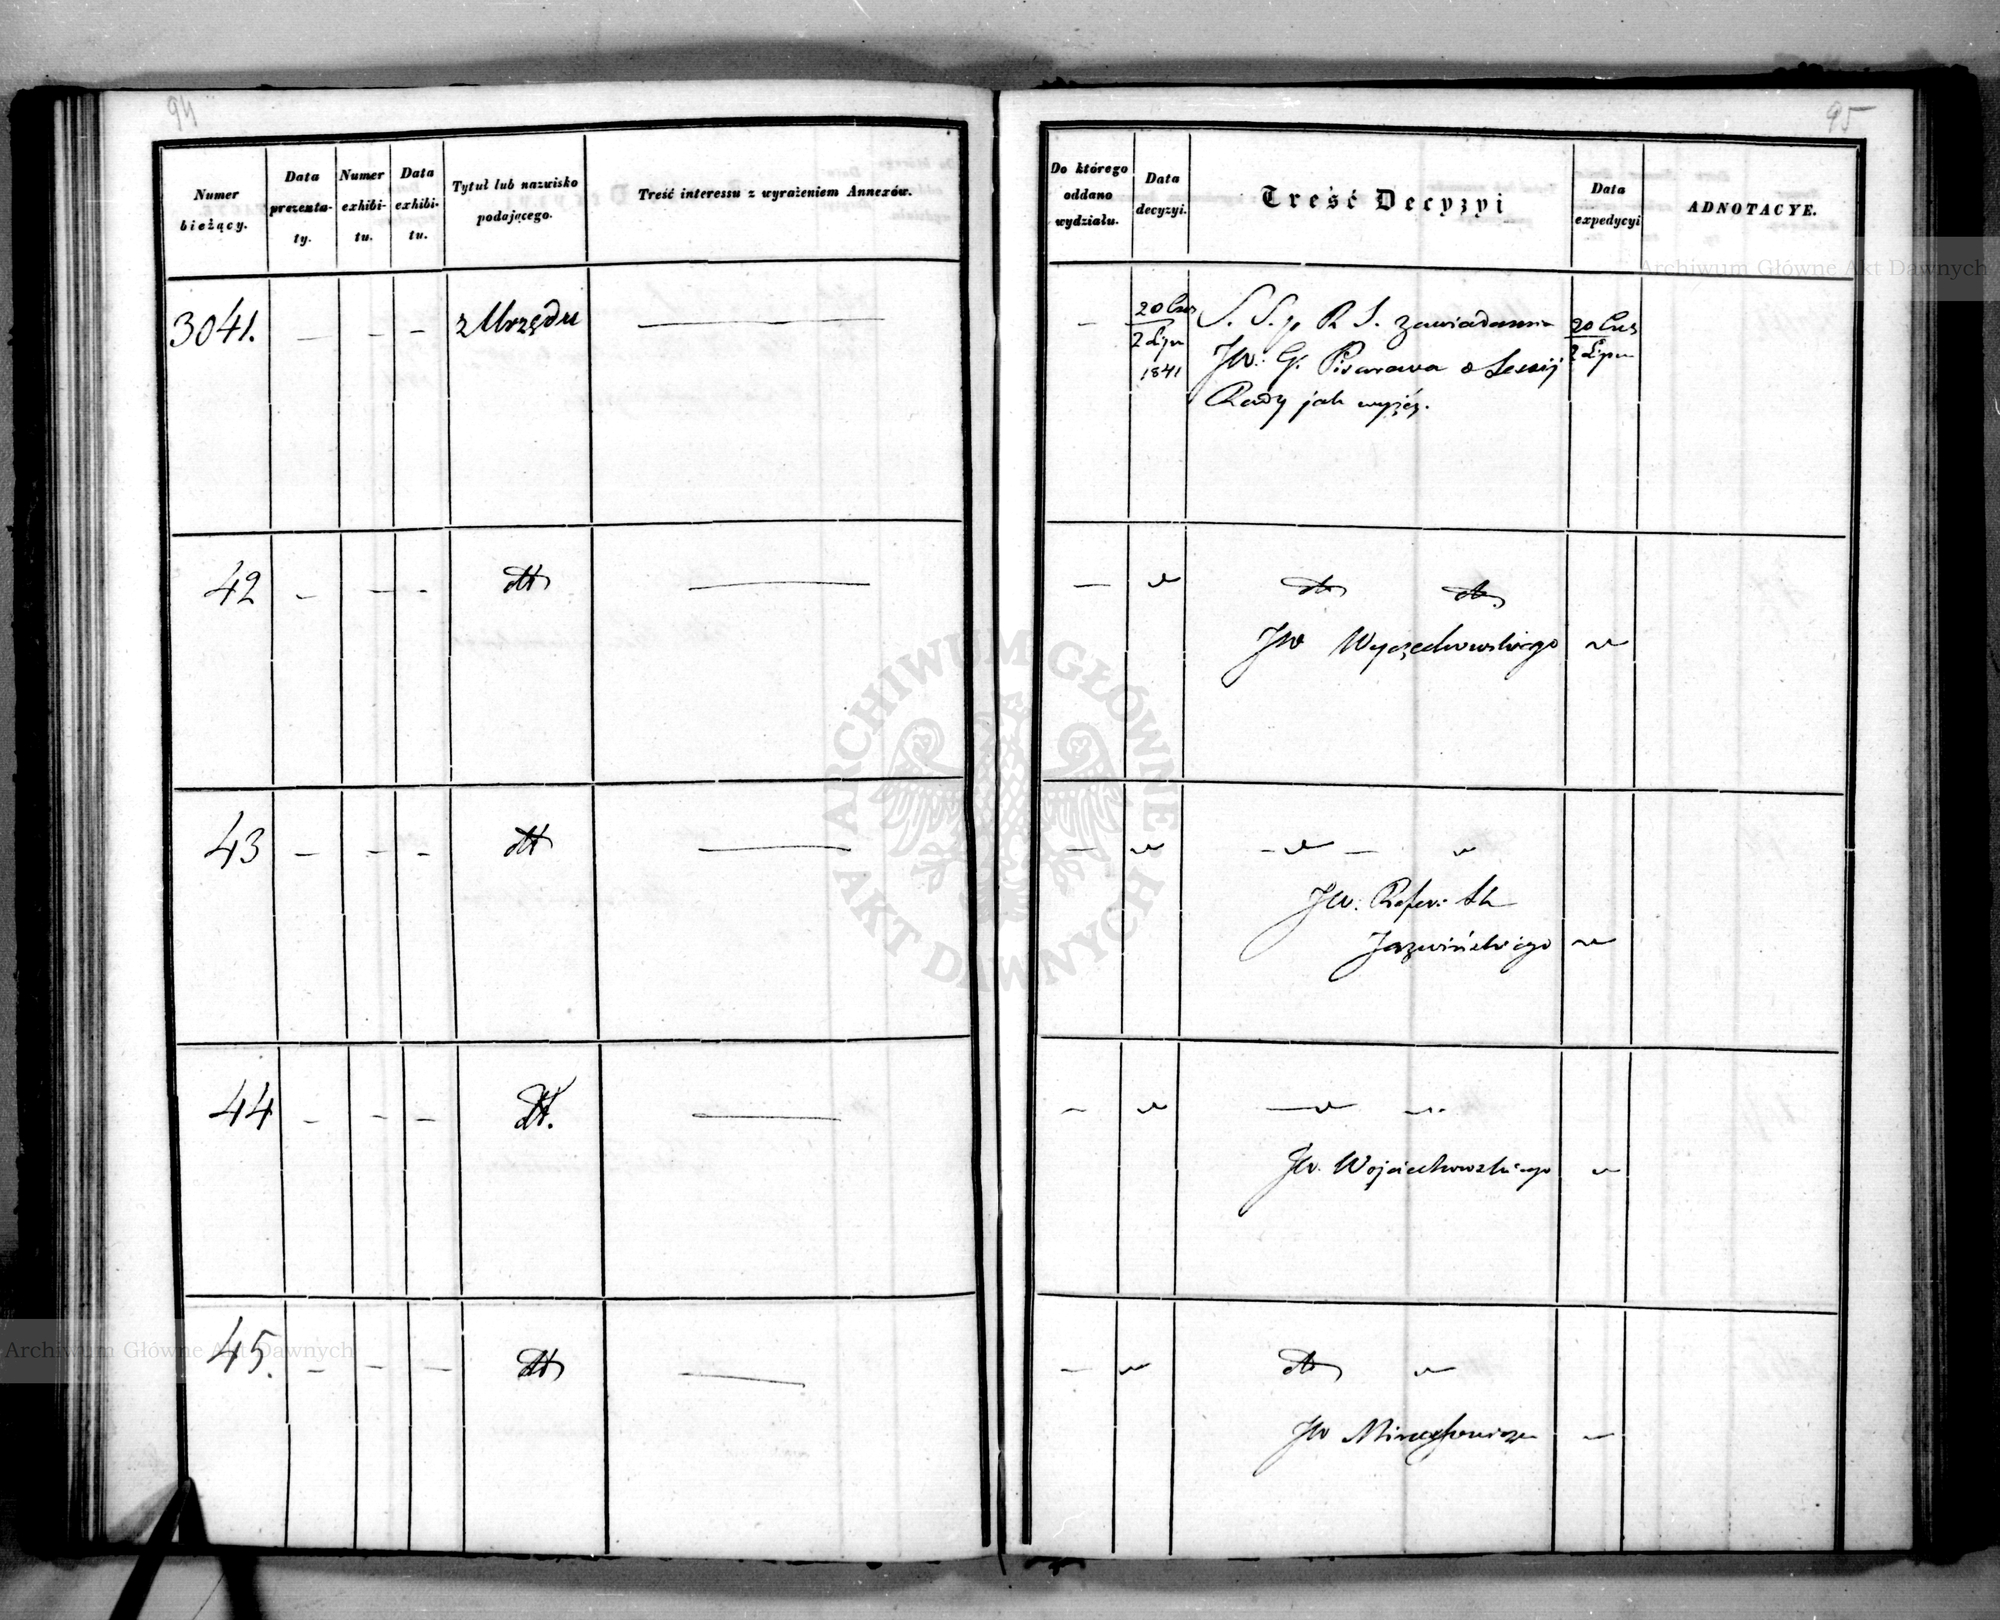 94
Numer bieżący.
Data prezenta-ty.
Numer exhibi-tu.
Data exhibi-tu.
Tytuł lub nazwisko podającego.
Treść interessu z wyrażeniem Annexów.
3041. — — — z Urzędu —
42 — — — dtt —
43 — — — dtt —
44 — — — dtt. —
45. — — — dtt —
95
Do którego oddano wydziału.
Data decyzyi.
Treść Decyzyi
Data expedycyi
ADNOTACYE.
— 20 Czer
2 Lipca
1841
S. S. p. R. S. zawiadamia
JW: G. Pisarewa o Sessij
Rady jak wyżej.
20 Czer
2 Lipca
— " dtt dtt
JW Wyczechowskiego "
— " — " — "
JW: Refer: St
Jaźwińskiego "
— " — " "
JW. Wojciechowskiego "
— " dtt "
JW "
ARCHIWUM GŁÓWNE AKT DAWNYCH
Archiwum Główne Akt Dawnych
Archiwum Główne Akt Dawnych